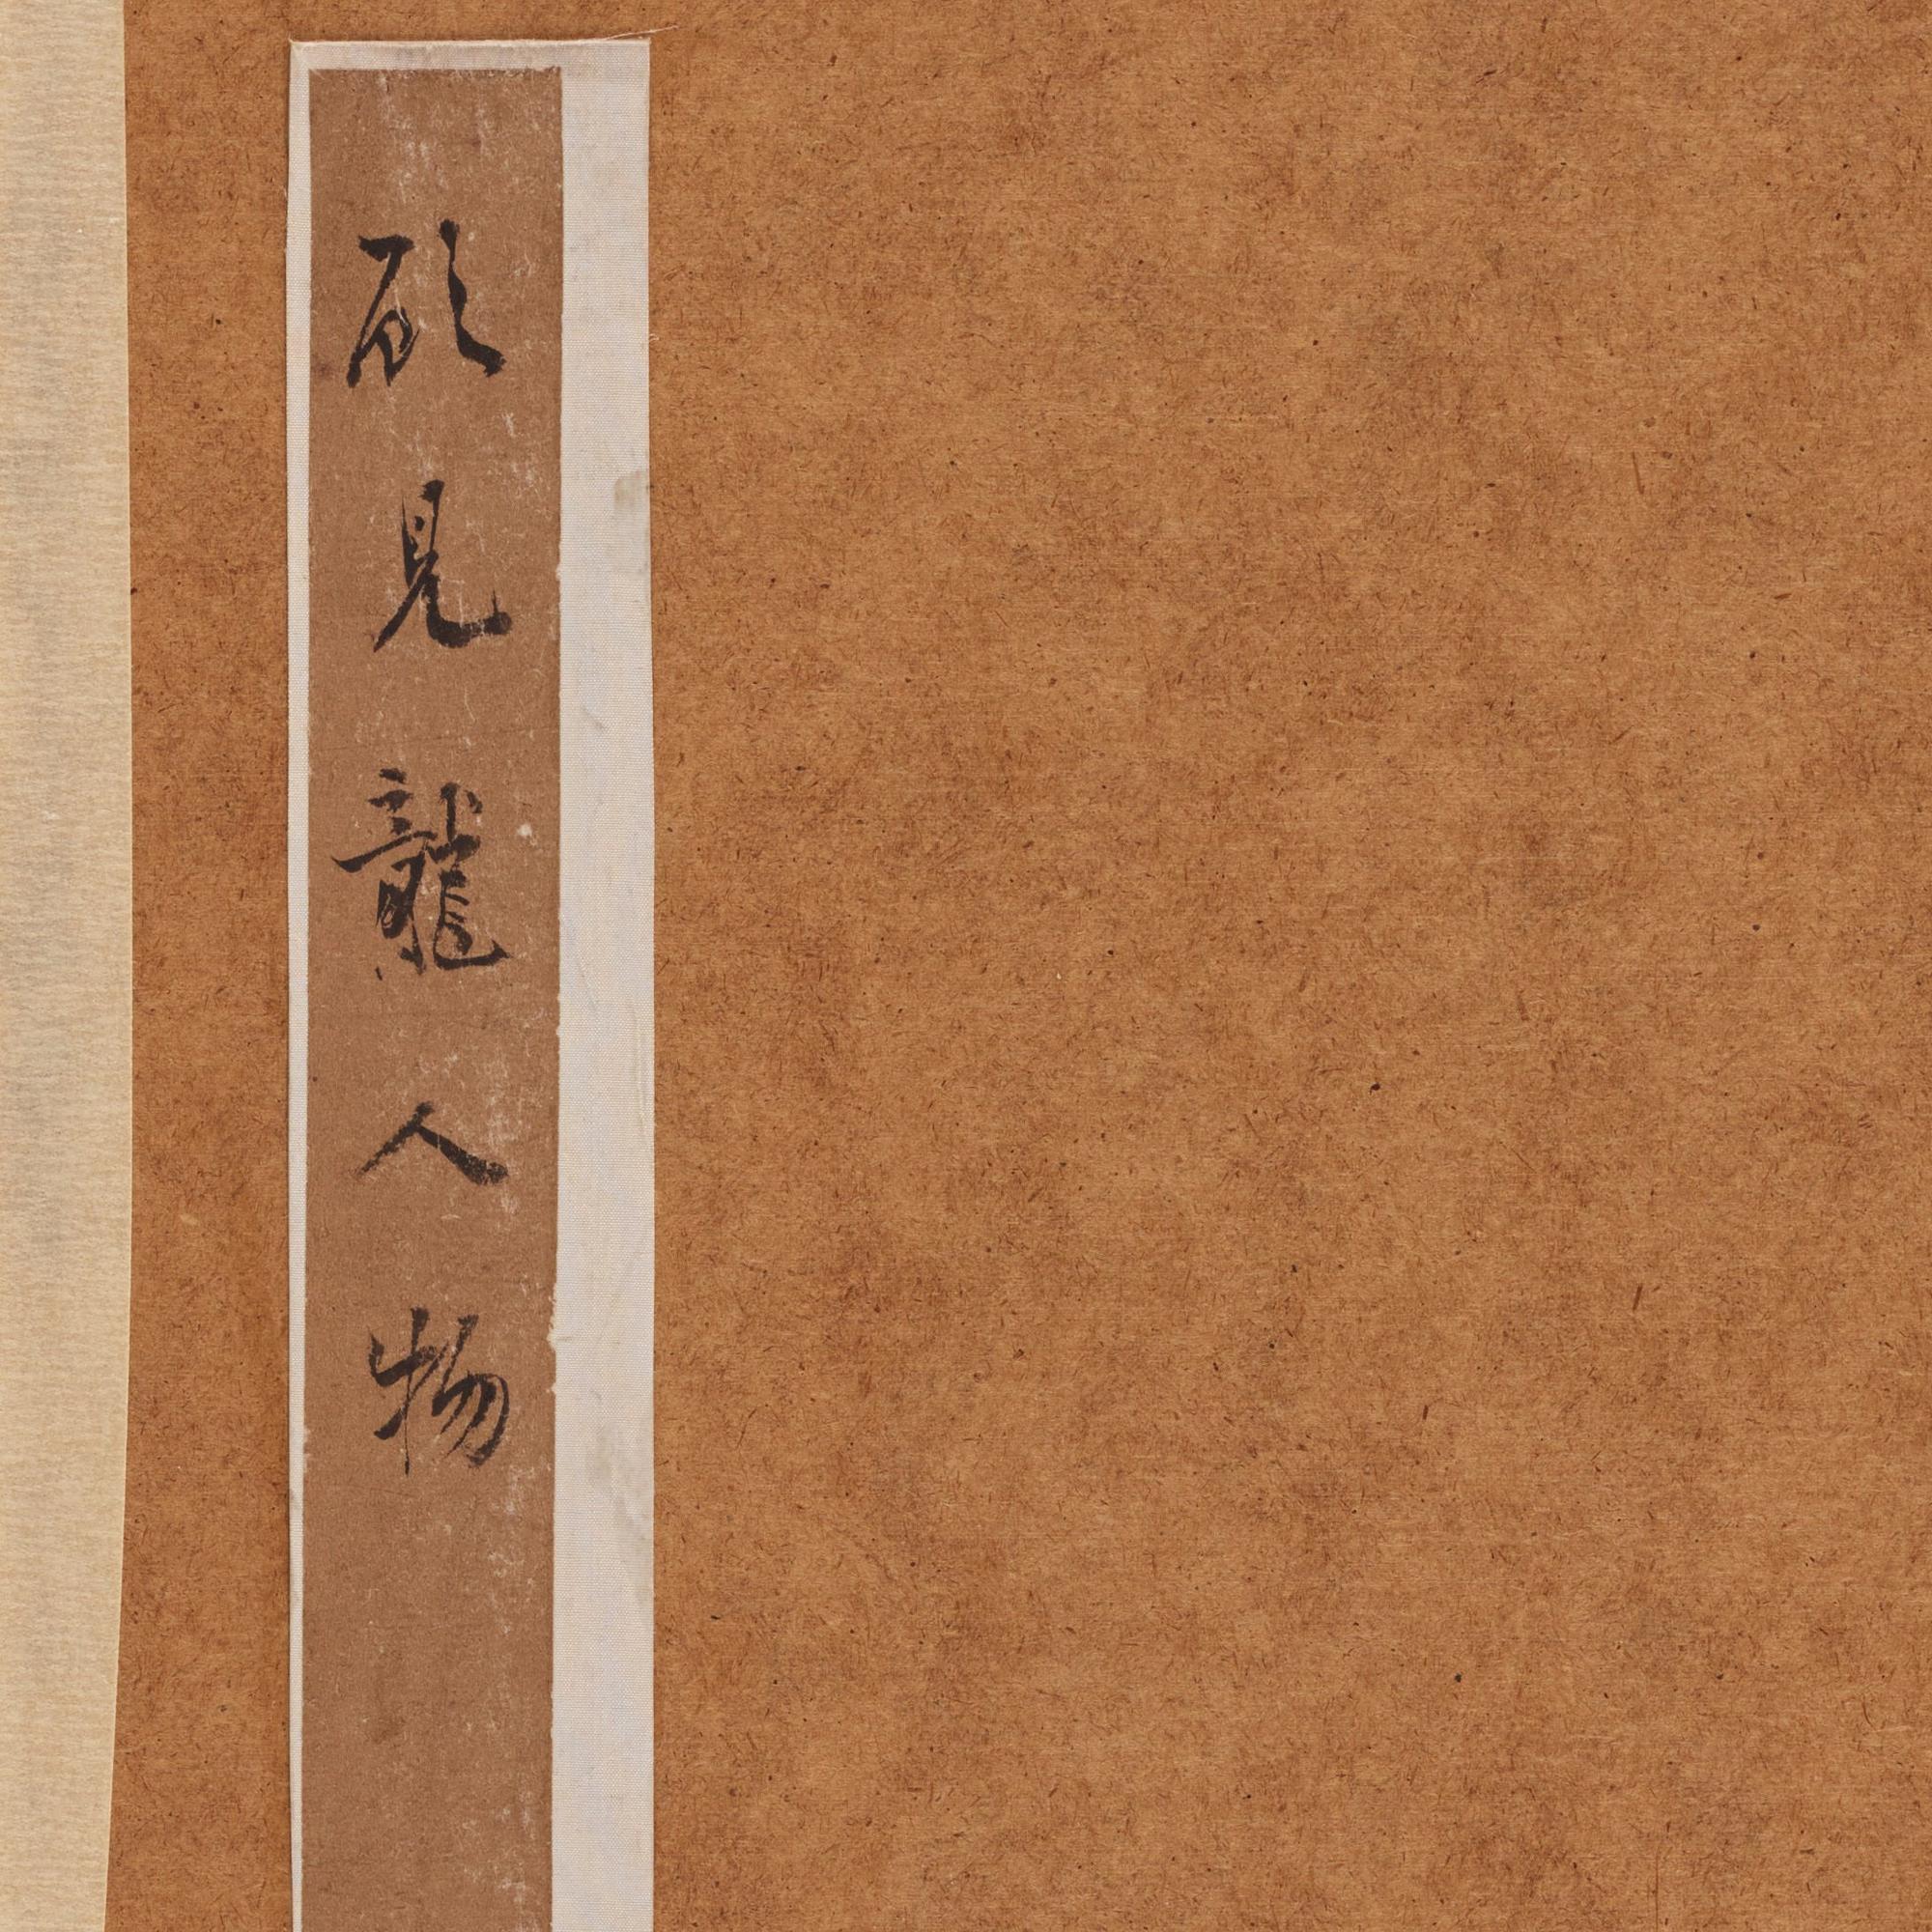 顧見龍人物